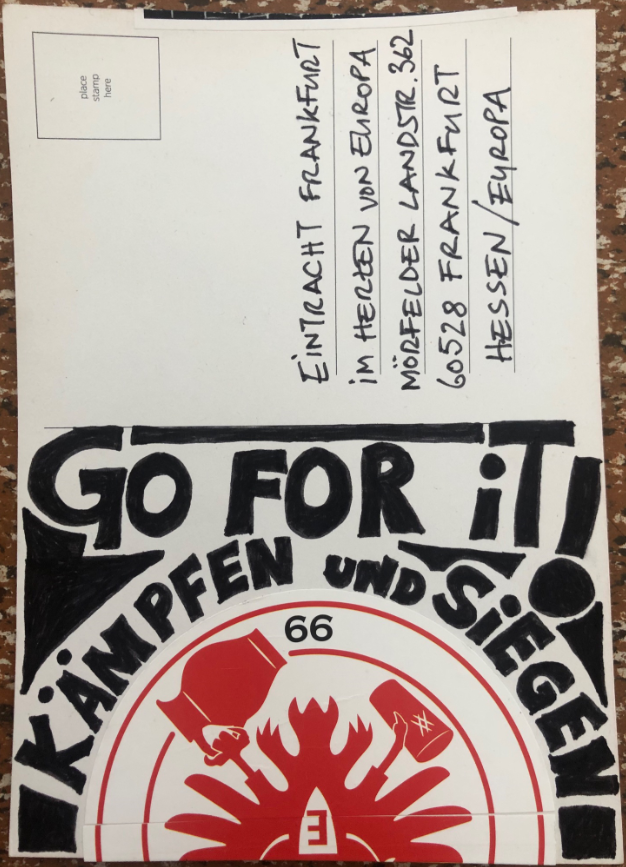 place
stamp
here
EINTRACHT FRANKFURT
IM HERZEN VON EUROPA
MÖRFELDER LANDSTR. 362
60528 FRANKFURT
HESSEN/EUROPA
GO FOR iT!
KÄMPFEN UND SiEGEN!
66
#
E